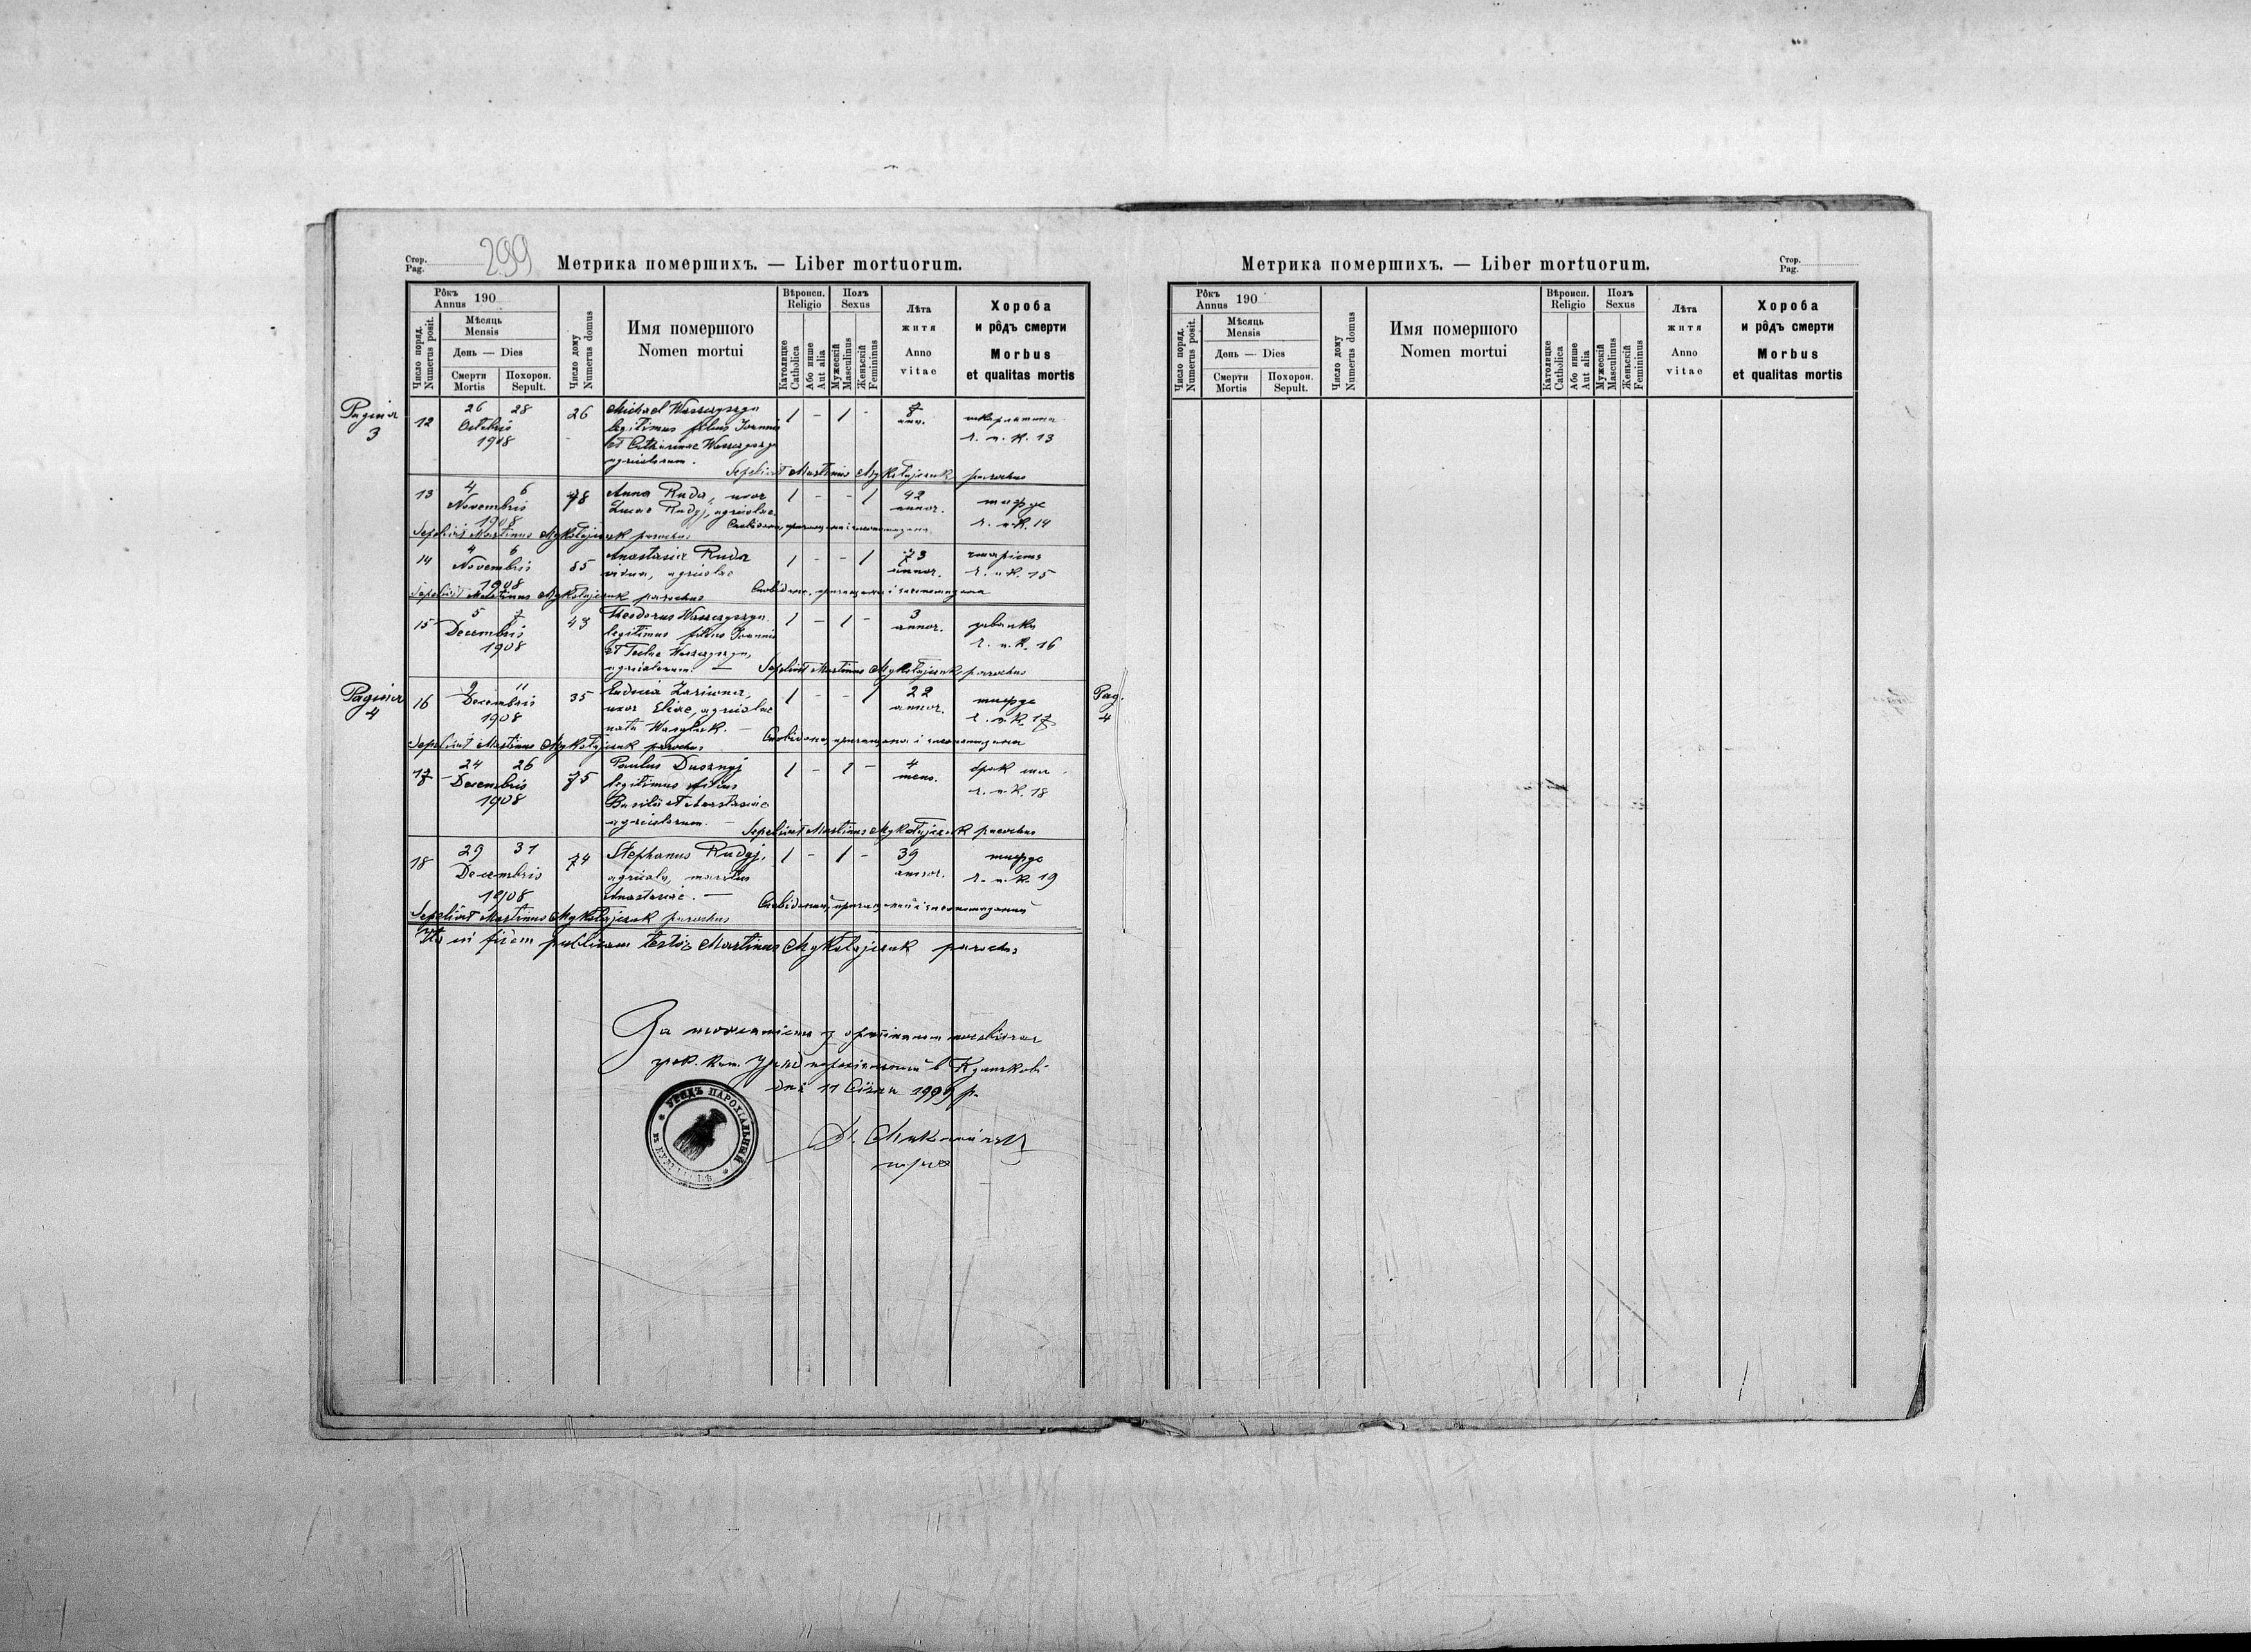 Стор.
Pag.
299
Метрика помершихъ. — Liber mortuorum.
Рôкъ
Annus 190
Число поряд.
Numerus posit.
Мѣсяць
Mensis
День — Dies
Смерти
Mortis
Похорон.
Sepult.
Число дому
Numerus domus
Имя помершого
Nomen mortui
Вѣроисп.
Religio
Католицке
Catholica
Або инше
Aut alia
Полъ
Sexus
Мужескій
Masculinus
Женьскій
Femininus
Лѣта
житя
Anno
vitae
Хороба
и рôдъ смерти
Morbus
et qualitas mortis
Pagina
3
12
26 28
Octobris
1908
26
Michael
legitimus filius Joannis
et Catharinae
agricolarum.
1 - 1 -
7
ann.
шкарлятина
г. п. к. 13
Sepelivit Martinus Mykołajczuk parochus
13
4 6
Novembris
1908
78
Anna Ruda, uxor
Lucae Rudyj, agricolae.
1 - - 1
42
annor.
тифус
г. п. к. 14
Sepelivit Martinus Mykołajczuk parochus
14
4 6
Novembris
1908
85
Anastasia Ruda
vidua, agricolae
1 - - 1
73
annor.
старість
г. п. к. 15
Sepelivit Martinus Mykołajczuk parochus
15
5 7
Decembris
1908
43
Theodorus
legitimus filius Joannis
et Teclae
agricolarum. —
1 - 1 -
3
annor.
г. п. к. 16
Sepelivit Martinus Mykołajczuk parochus
Pagina
4
16
9 11
Decembris
1908
35
Eudocia
uxor Eliae, agricolae
nata Wasyluk. —
1 - - 1
22
annor.
тифус
г. п. к. 17
Sepelivit Martinus Mykołajczuk parochus
17
24 26
Decembris
1908
75
Paulus
legitimus filius
Basilii et Anastasiae
agricolarum. —
1 - 1 -
4
mens.
г. п. к. 18
Sepelivit Martinus Mykołajczuk parochus
18
29 31
Decembris
1908
74
Stephanus Rudyj,
agricola, maritus
Anastasiae. —
1 - 1 -
39
annor.
тифус
г. п. к. 19
Sepelivit Martinus Mykołajczuk parochus
Ita in fidem publicam testor Martinus Mykołajczuk parochus
За
дня 11 Січня 1909 р.
УРЯДЪ ПАРОХІАЛЬНЫЙ
Метрика помершихъ. — Liber mortuorum.
Стор.
Pag.
Рôкъ
Annus 190
Число поряд.
Numerus posit.
Мѣсяць
Mensis
День — Dies
Смерти
Mortis
Похорон.
Sepult.
Число дому
Numerus domus
Имя помершого
Nomen mortui
Вѣроисп.
Religio
Католицке
Catholica
Або инше
Aut alia
Полъ
Sexus
Мужескій
Masculinus
Женьскій
Femininus
Лѣта
житя
Anno
vitae
Хороба
и рôдъ смерти
Morbus
et qualitas mortis
Pag.
4